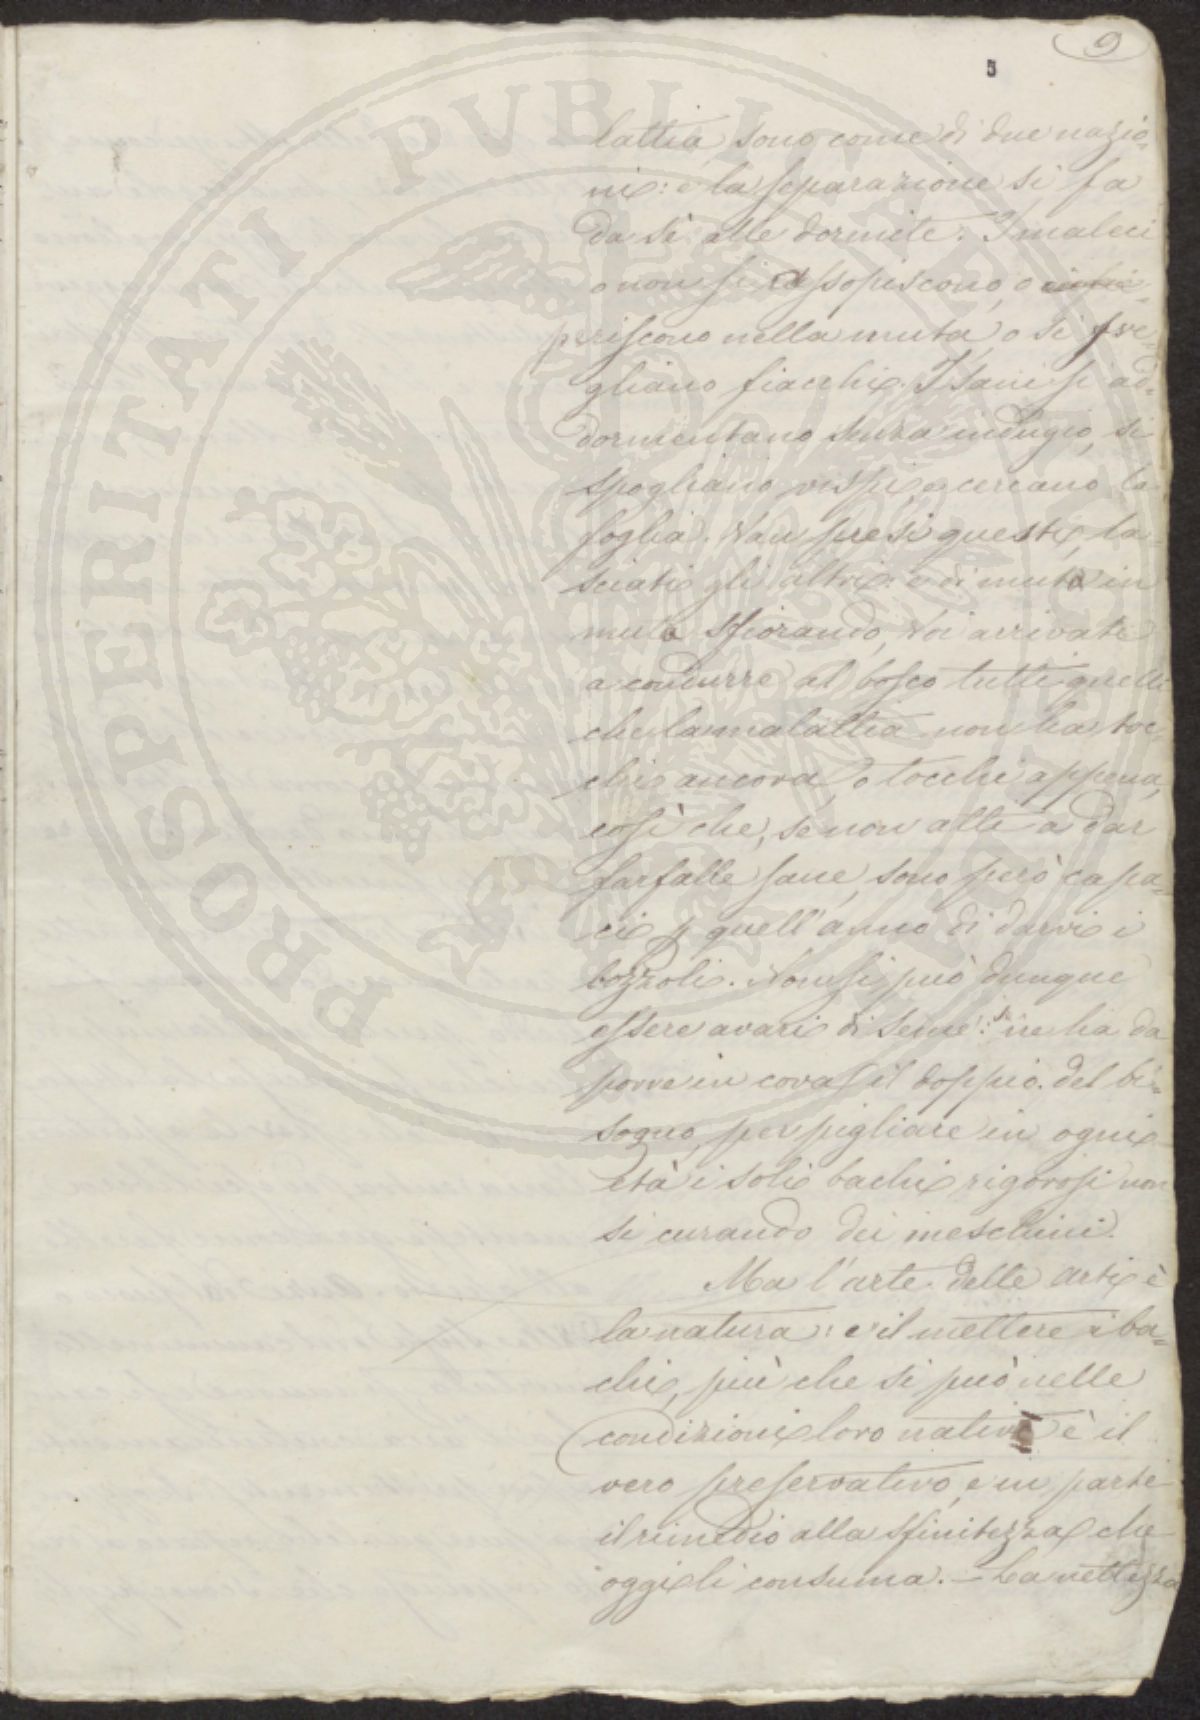 9
5
lattia, sono come di due nazio-
ni: e la separazione si fa
da sè alle dormite. I malcci
o non si assopiscono, o
periscono nella muta, o si sve-
gliano fiacchi. I sani si ad-
dormentano senza indugio, si
spogliano vispi, e cercano la
foglia. Van presi questi, la-
sciati gli altri: e di muta in
muta sfiorando, Voi arrivate
a condurre al bosco tutti quelli
che la malattia non ha toc-
chi ancora, o tocchi appena,
così che, se non atti a dar
farfalle sane, sono però capa-
ci p quell'anno di darvi i
bozzoli. Non si può dunque
essere avari di seme: se ne ha da
porre in cova il doppio del bi-
sogno, per pigliare in ogni
età i soli bachi rigorosi non
si curando dei meschini.
Ma l'arte delle arti è
la natura: e il mettere i ba-
chi, più che si può nelle
condizioni loro native è il
vero preservativo, e in parte
il rimedio alla sfinitezza che
oggi li consuma. – La nettezza
PROSPERITATI PUBLICAE AUGENDAE